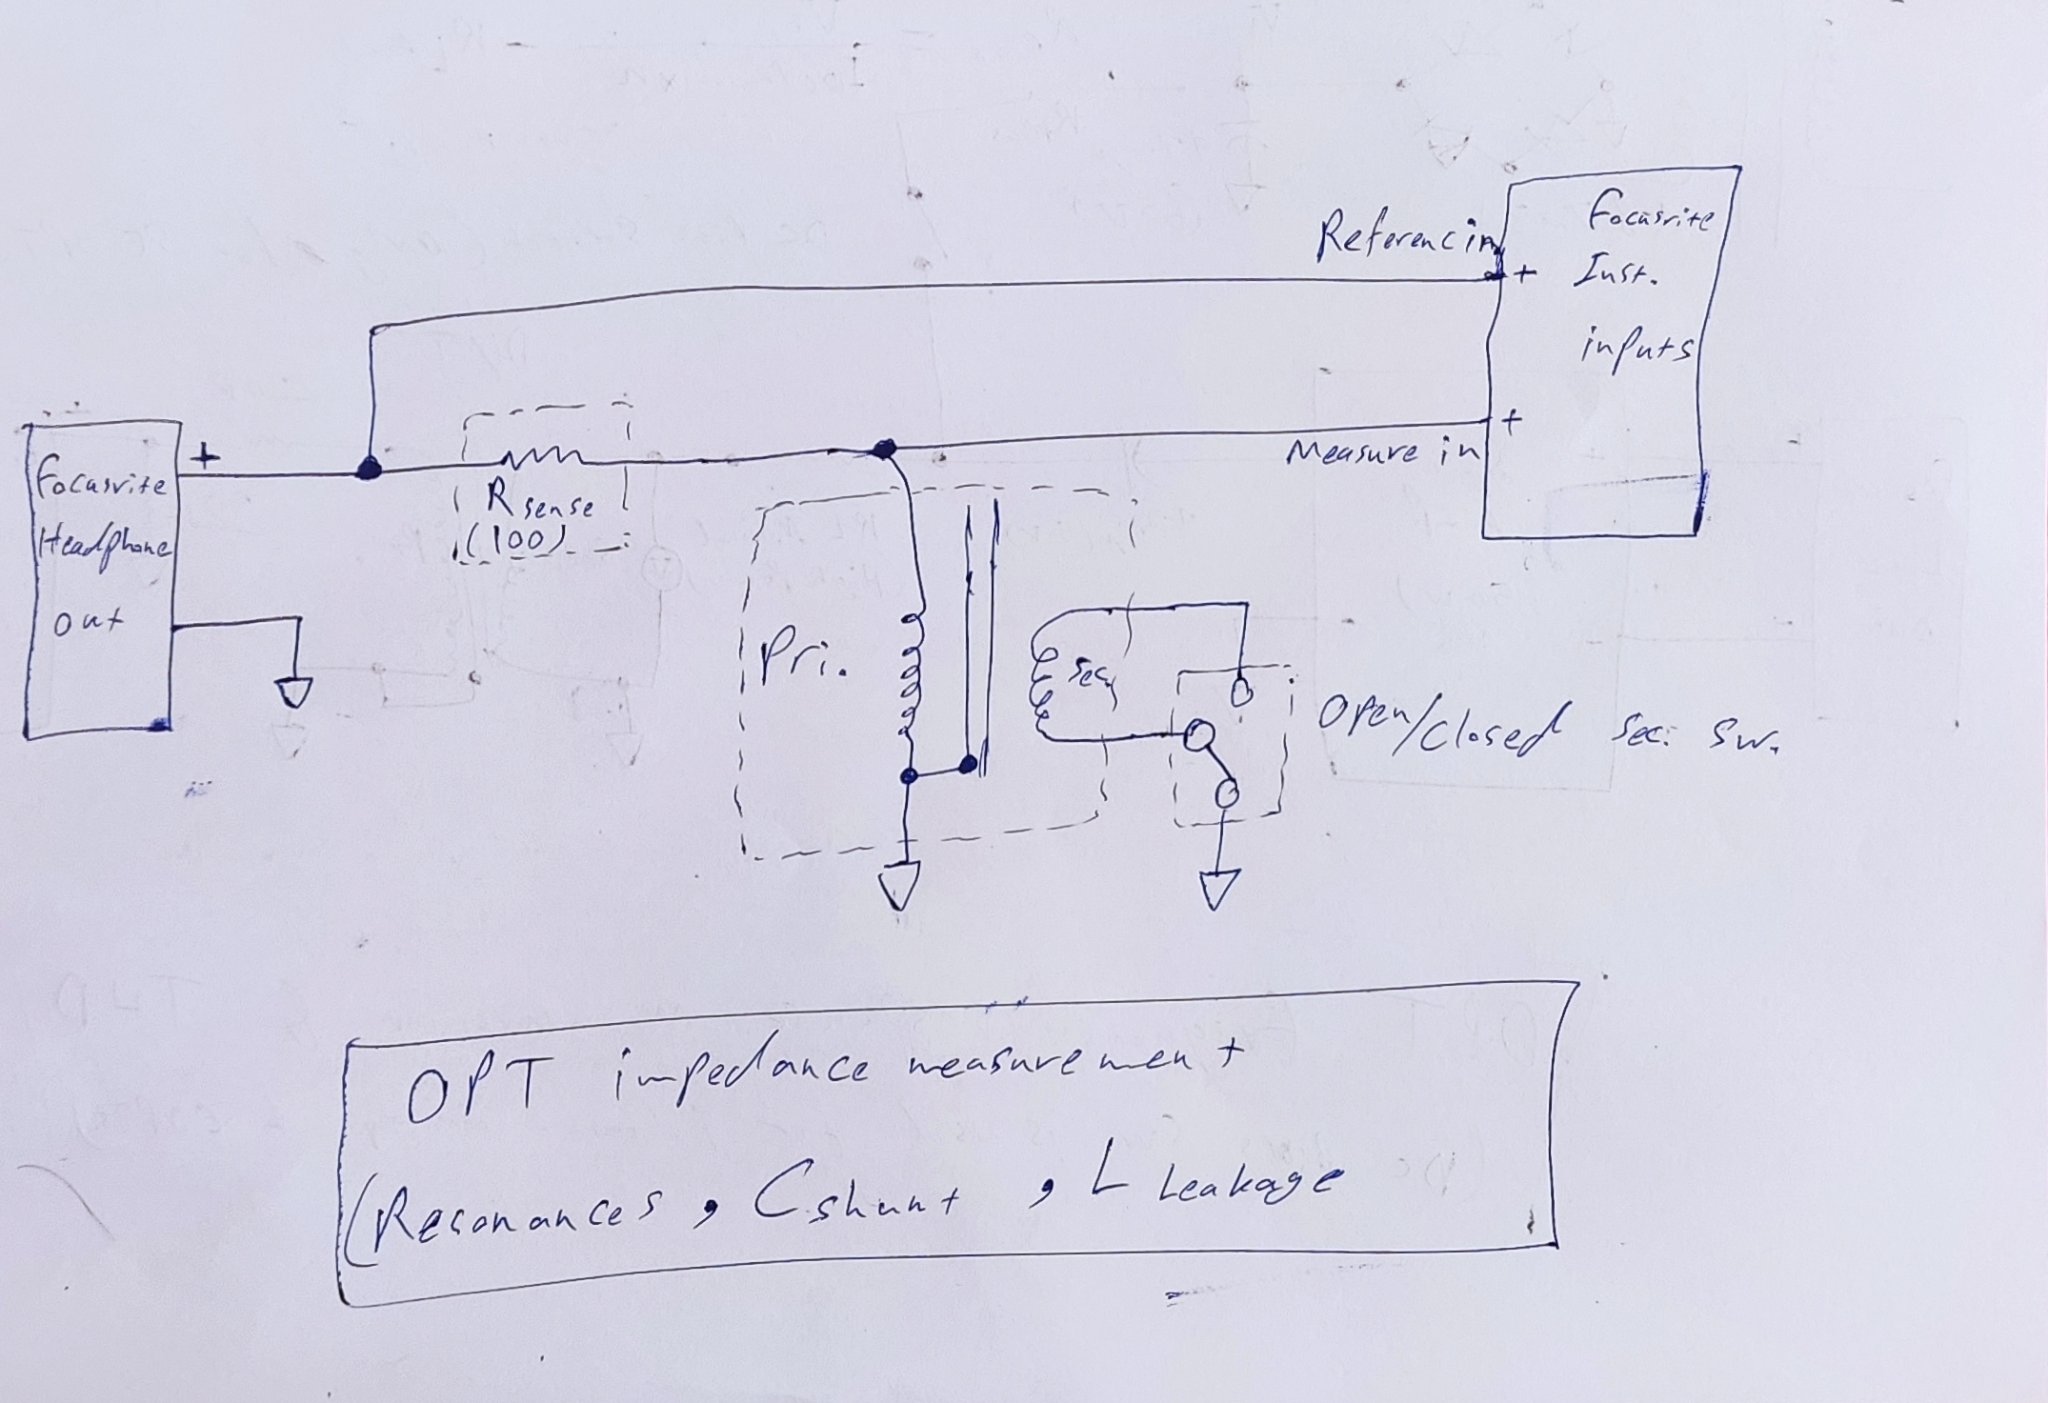 Focusrite
Inst.
inputs
Referencin
+
+
Measure in
+
Focusrite
Headphone
out
Rsense
(100)
Pri.
sec.
Open/closed sec. sw.
OPT impedance measurement
(Resonances, Cshunt, L Leakage